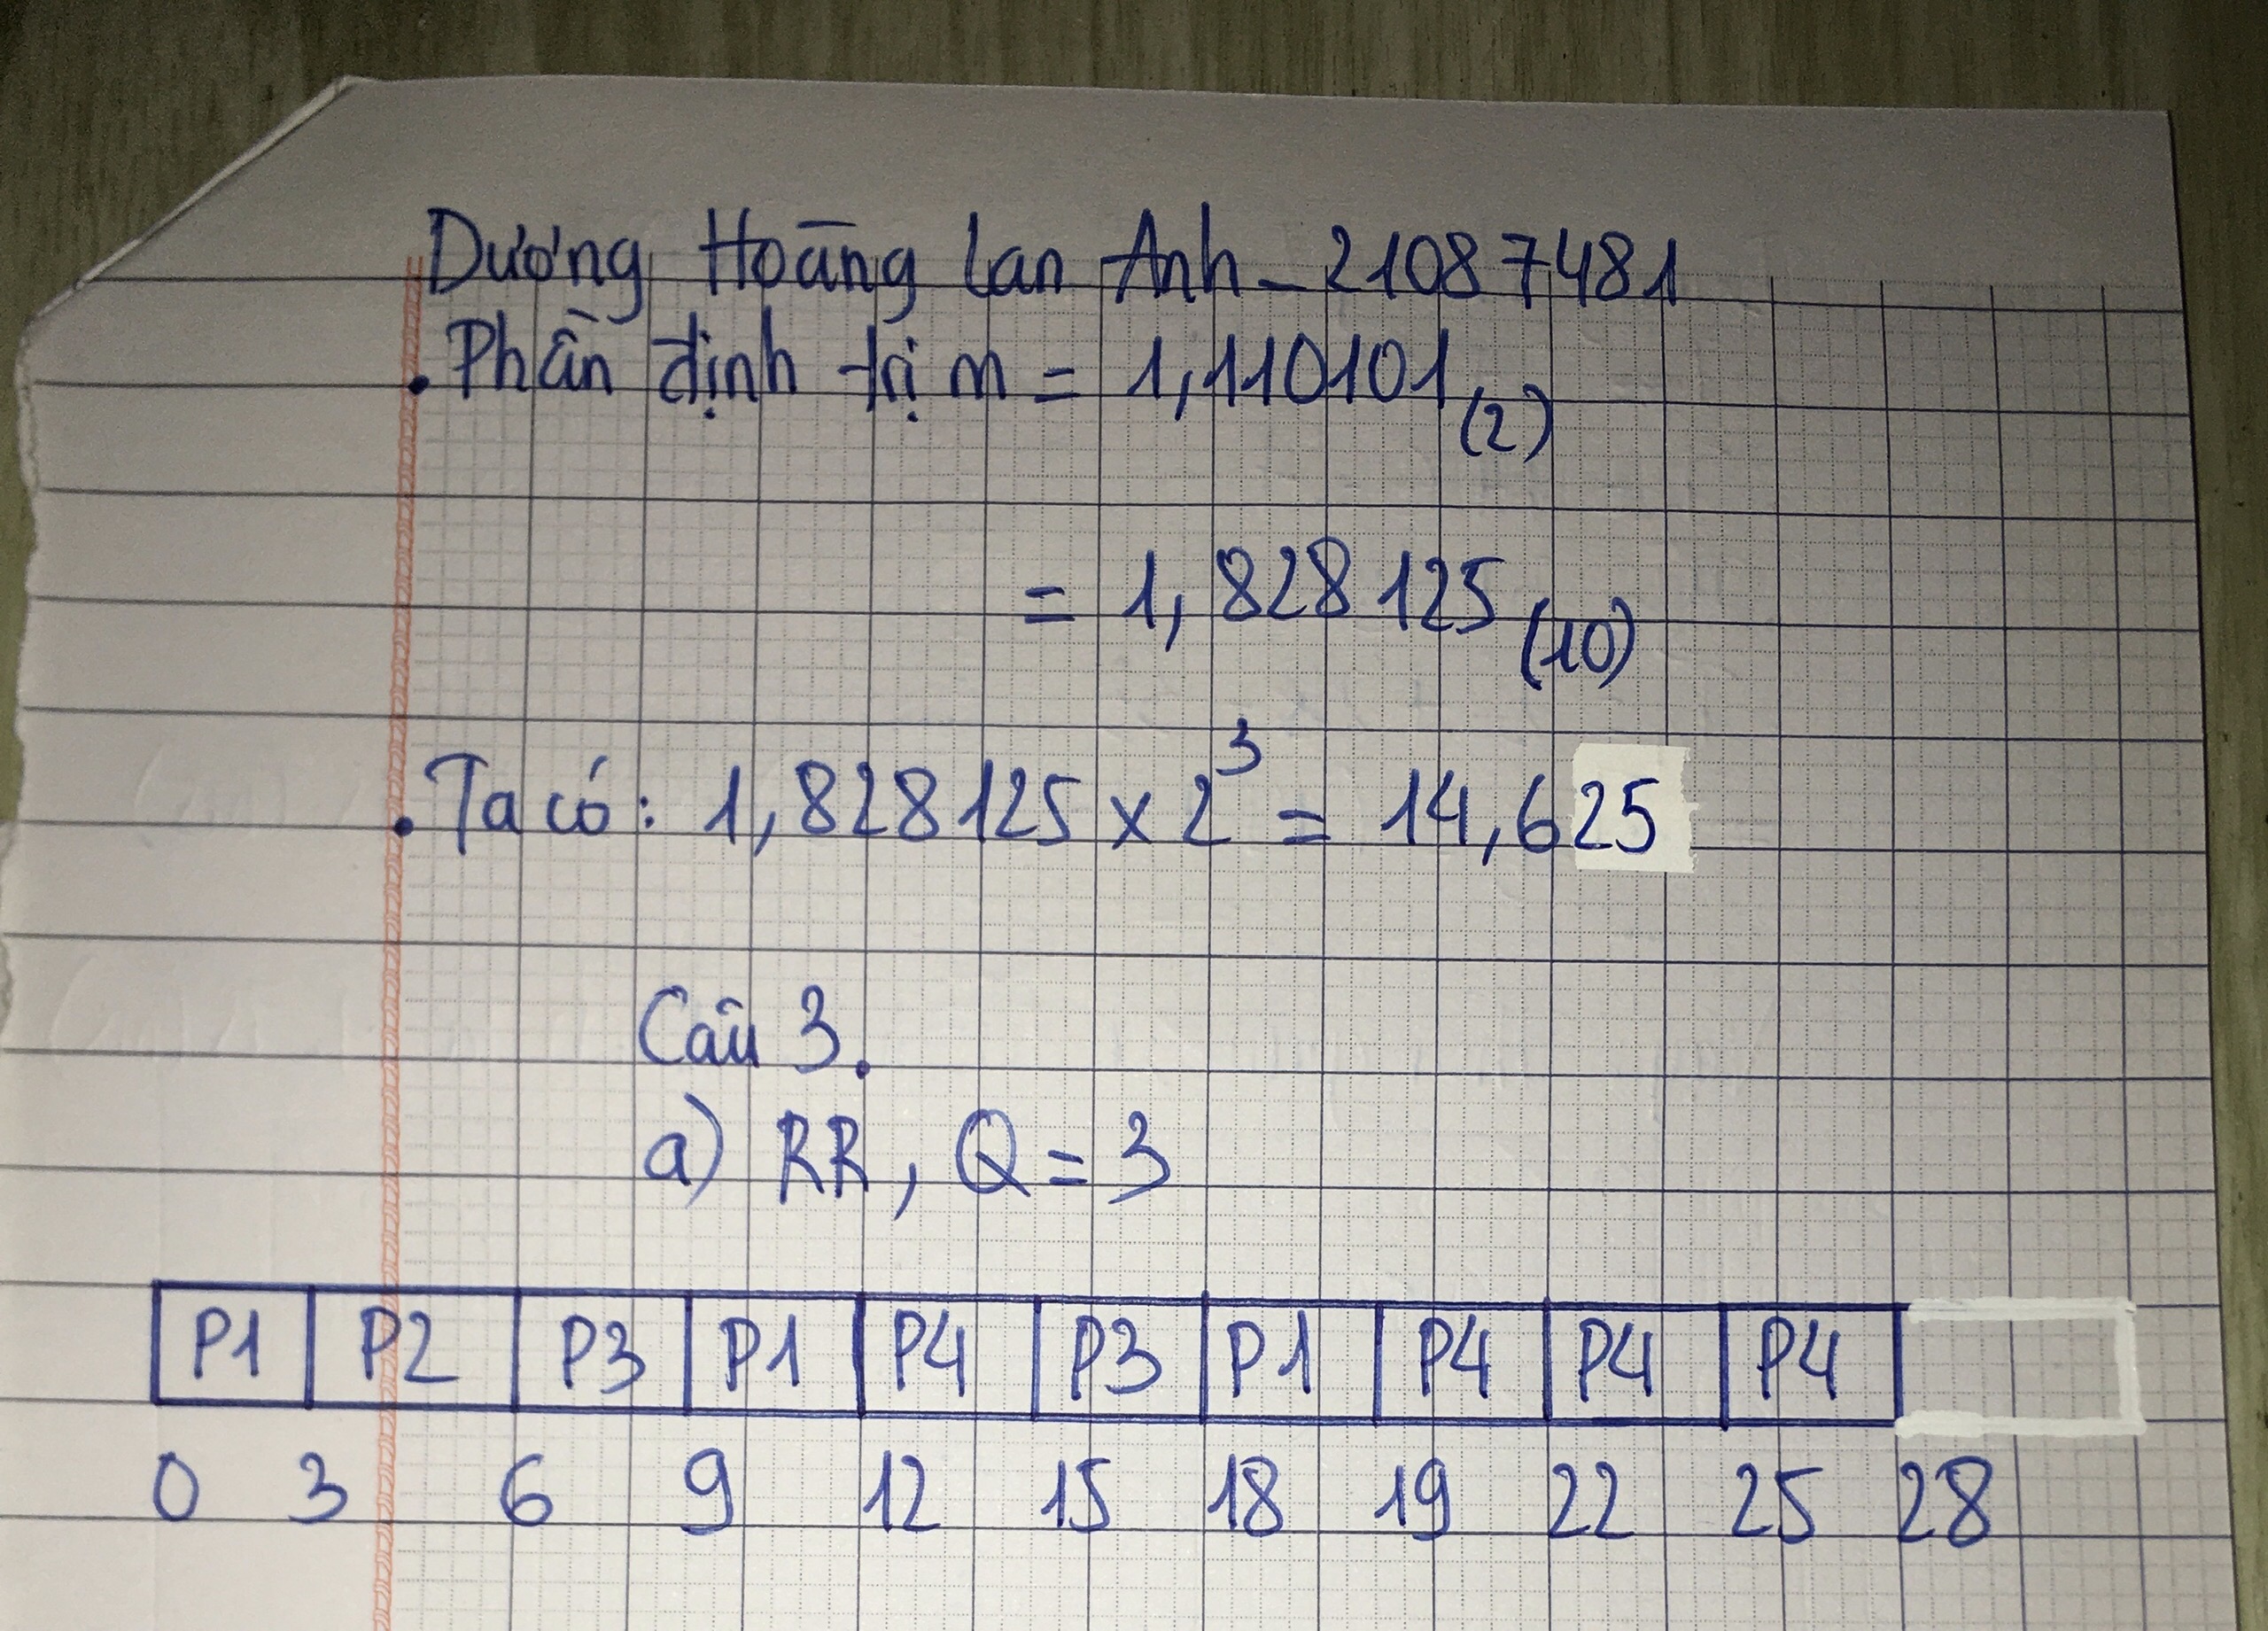 Dương Hoàng Lan Anh - 21087481
. Phần định trị m = 1,110101 (2)
= 1,828125 (10)
. Ta có : 1,828125 x 2³ = 14,625
Câu 3.
a) RR, Q = 3
P1 P2 P3 P1 P4 P3 P1 P4 P4 P4
0 3 6 9 12 15 18 19 22 25 28